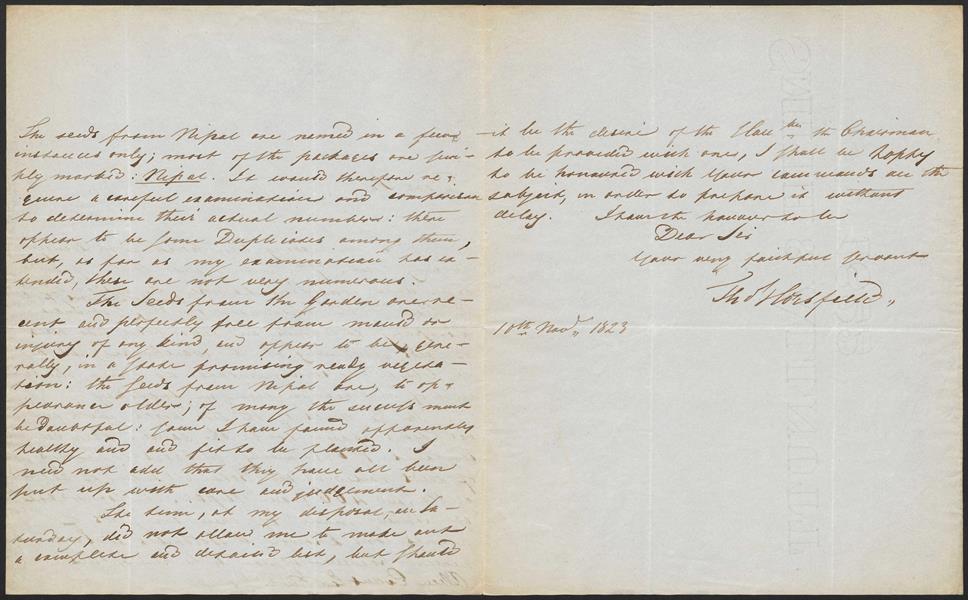 The seeds from Nipal are named in a few
instances only; most of the packages are sim-
ply marked: Nepal. It would therefore re-
quire a careful examination and comparison
to determine their actual number: there
appear to be some Duplicates among them,
but, as far as my examination has ex-
tended, these are not very numerous.
The Seeds from the Garden are re-
cent and perfectly free from mould or
injury of any kind, and appear to be, gene-
rally, in a state promising ready vegeta-
tion: the Seeds from Nipal are, to ap-
pearance older; of many the success must
be doubtful: some I have found apparently
healthy and and fit to be planted. I
need not add that they have all been
put up with care and judgement.
The time, at my disposal, on Sa-
turday, did not allow me to make out
a complete and detailed list, but should
it be the desire of the Hon ble the Chairman
to be provided with one, I shall be happy
to be honoured with your commands on the
subject, in order to prepare it without
delay. I have the honour to be
Dear Sir
Your very faithful Servant
Tho.s Horsfield,,
10th Nov.r,, 1823